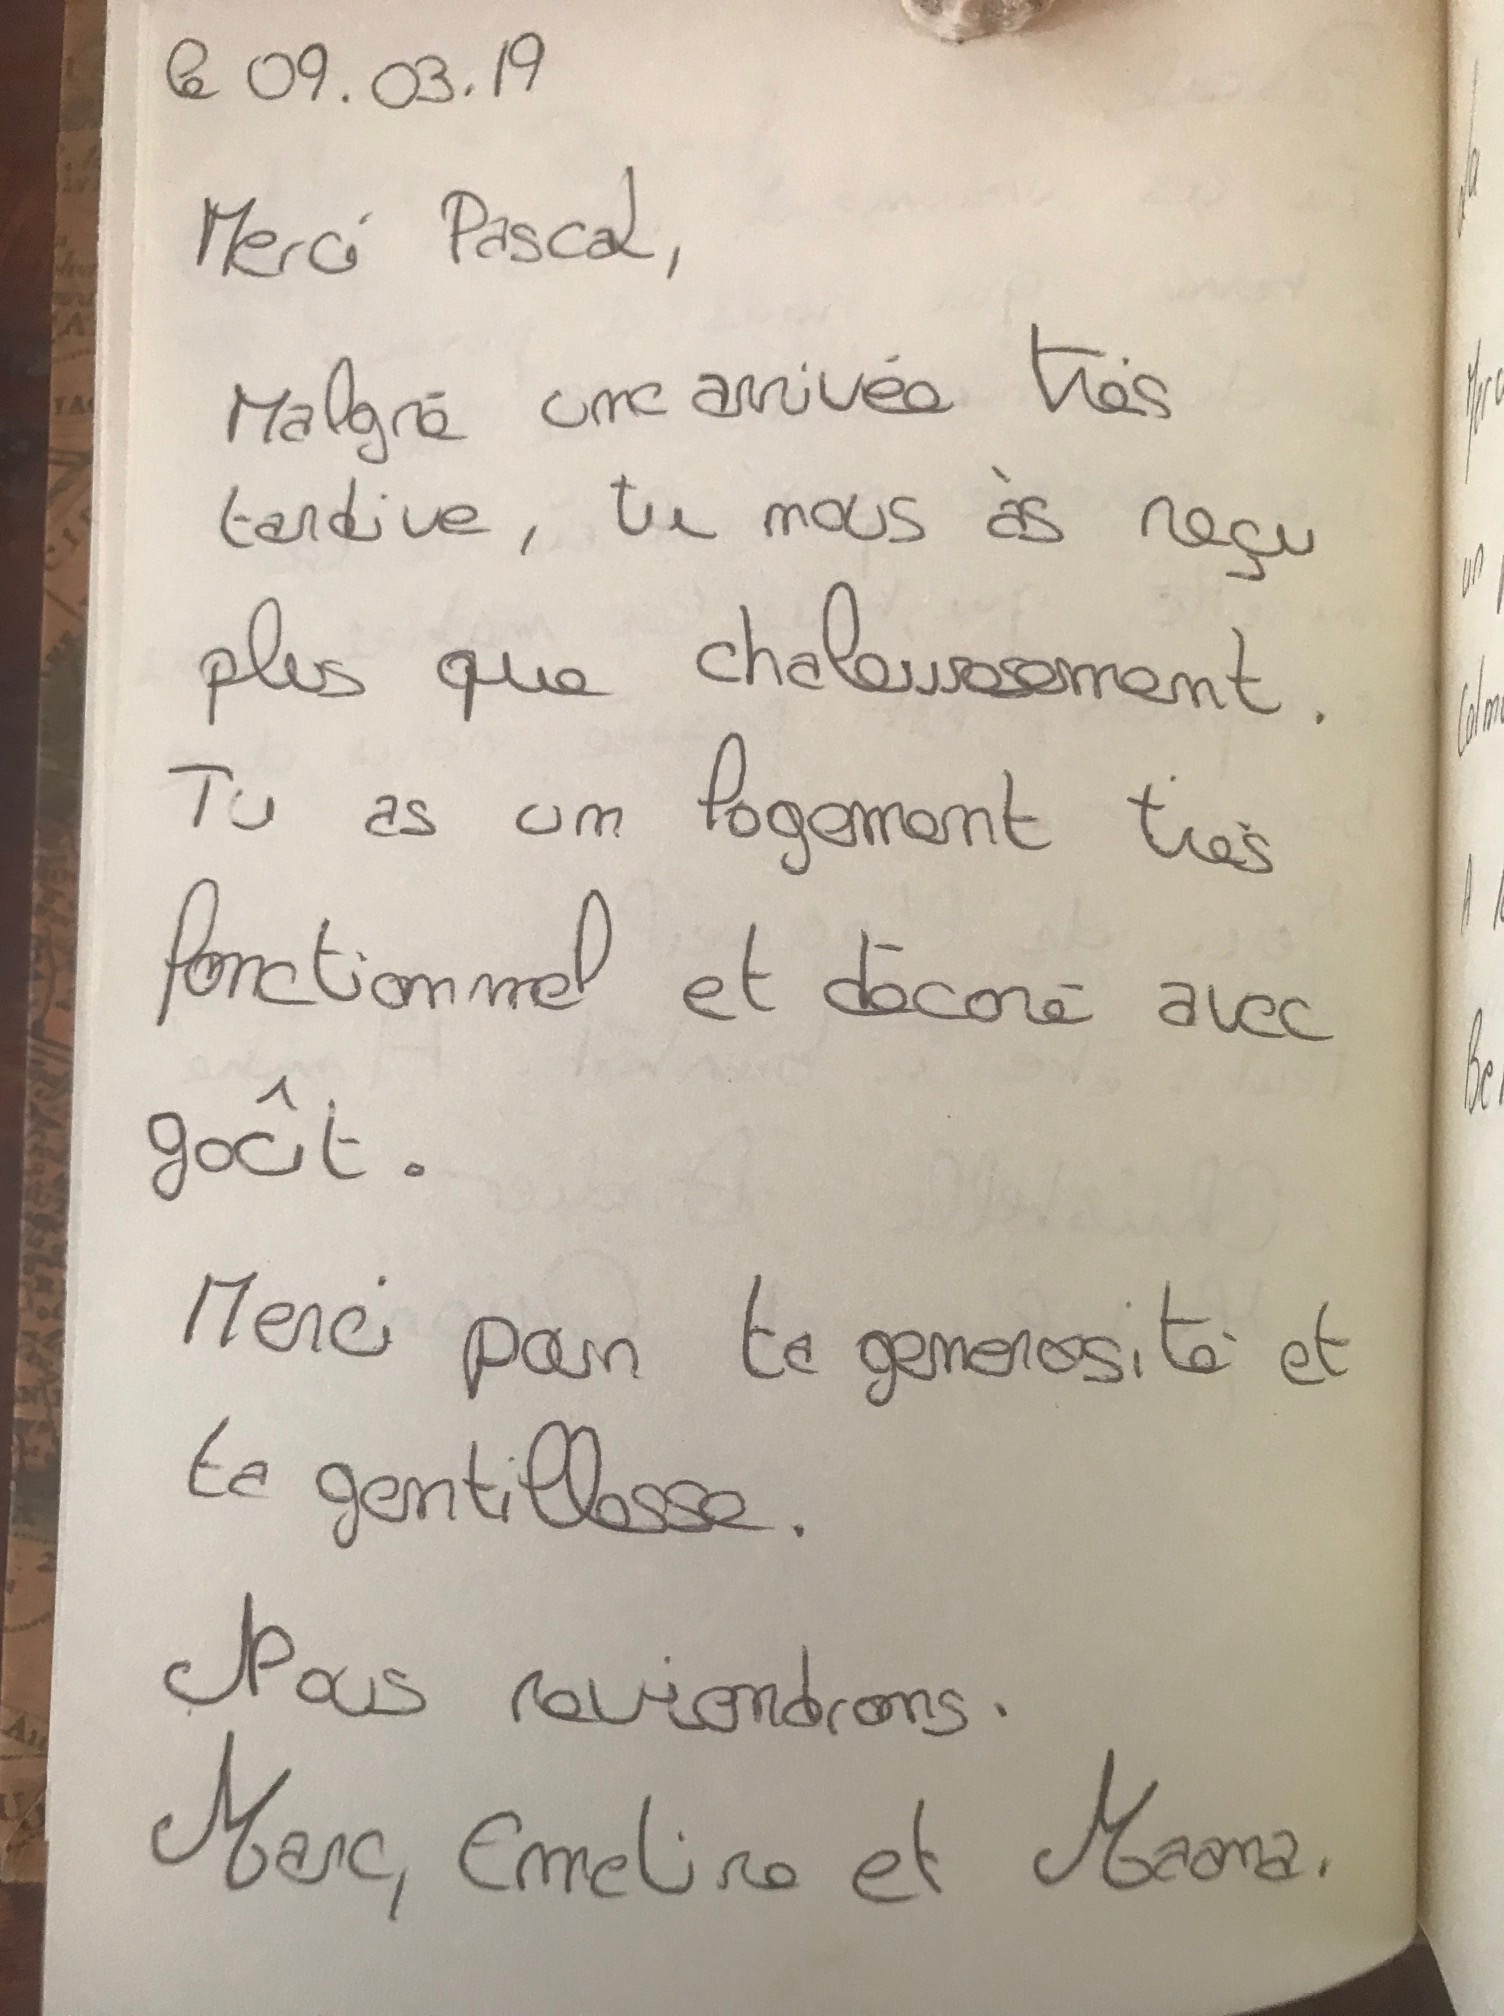 le 09.03.19
Merci Pascal,
Malgré une arrivée très
tardive, tu nous às reçu
plus que chaleurosement.
Tu as un logement très
fonctionnel et décoré avec
goût.
Merci pour ta generosité et
ta gentillesse.
Nous reviendrons.
Marc, Emeline et